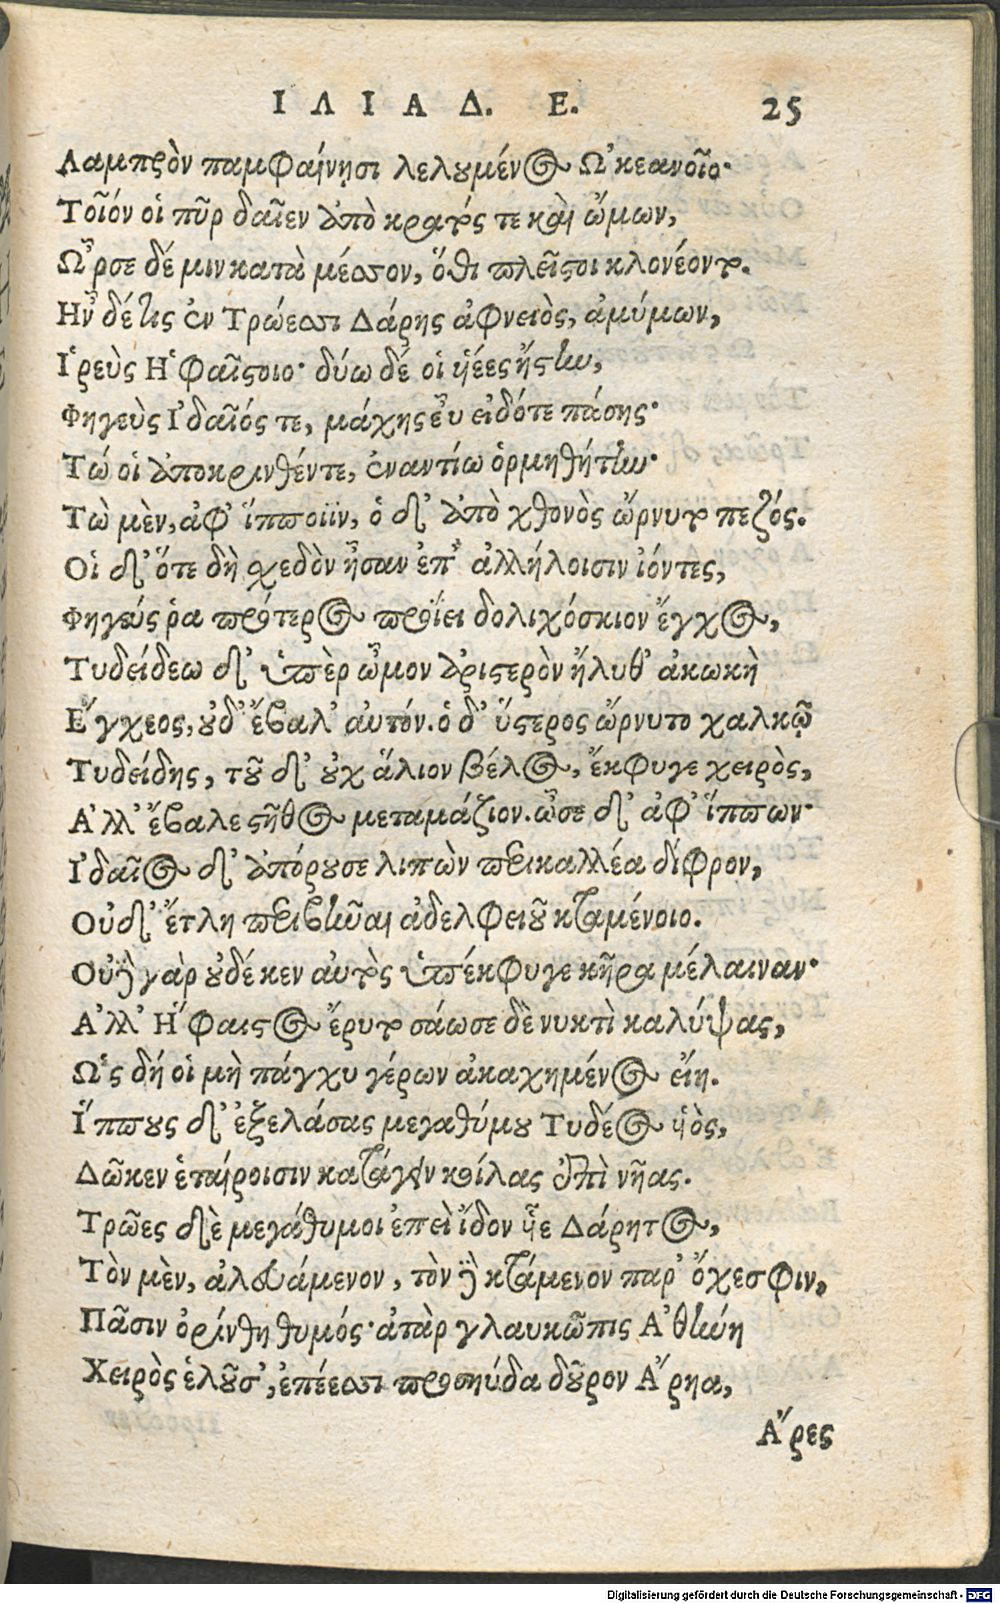 ΙΛΙΑΔ. Ε. 25
Λαμπρὸν παμφαίνησι λελουμένος Ὠκεανοῖο·
Τοῖόν οἱ πῦρ δαῖεν ἀπὸ κρατός τε καὶ ὤμων,
Ὦρσε δέ μιν κατὰ μέσσον, ὅθι πλεῖστοι κλονέοντο.
Ἠν δέ τις ἐν Τρώεσσι Δάρης ἀφνειὸς, ἀμύμων,
Ἱρεὺς Ἡφαίστοιο· δύω δέ οἱ υἱέες ἤστην,
Φηγεὺς Ἰδαῖός τε, μάχης εὖ εἰδότε πάσης·
Τώ οἱ ἀποκρινθέντε, ἐναντίω ὁρμηθήτην·
Τὼ μὲν, ἀφ' ἵπποιϊν, ὁ δ' ἀπὸ χθονὸς ὤρνυτο πεζός.
Οἱ δ' ὅτε δὴ σχεδὸν ἦσαν ἐπ' ἀλλήλοισιν ἰόντες,
Φηγεύς ῥα πρότερος προΐει δολιχόσκιον ἔγχος,
Τυδείδεω δ' ὑπὲρ ὦμον ἀριστερὸν ἤλυθ' ἀκωκὴ
Ἔγχεος, οὐδ' ἔβαλ' αὐτόν. ὁ δ' ὕστερος ὤρνυτο χαλκῷ
Τυδείδης, τοῦ δ' οὐχ ἅλιον βέλος, ἔκφυγε χειρὸς,
Ἀλλ' ἔβαλε στῆθος μεταμάζιον. ὦσε δ' ἀφ' ἵππων·
Ἰδαῖος δ' ἀπόρουσε λιπὼν περικαλλέα δίφρον,
Οὐδ' ἔτλη περιβῆναι ἀδελφειοῦ κταμένοιο.
Οὐδὲ γὰρ οὐδέ κεν αὐτὸς ὑπέκφυγε κῆρα μέλαιναν·
Ἀλλ' Ἥφαιστος ἔρυτο σάωσε δὲ νυκτὶ καλύψας,
Ὡς δή οἱ μὴ πάγχυ γέρων ἀκαχημένος εἴη.
Ἵππους δ' ἐξελάσας μεγαθύμου Τυδέος υἱὸς,
Δῶκεν ἑταίροισιν κατάγειν κοίλας ἐπὶ νῆας.
Τρῶες δὲ μεγάθυμοι ἐπεὶ ἴδον υἷε Δάρητος,
Τὸν μὲν, ἀλευάμενον, τὸν δὲ κτάμενον παρ' ὄχεσφιν,
Πᾶσιν ὀρίνθη θυμός· ἀτὰρ γλαυκῶπις Ἀθήνη
Χειρὸς ἑλοῦσ', ἐπέεσσι προσηύδα θοῦρον Ἄρηα,
Ἄρες
Digitalisierung gefördert durch die Deutsche Forschungsgemeinschaft - DFG